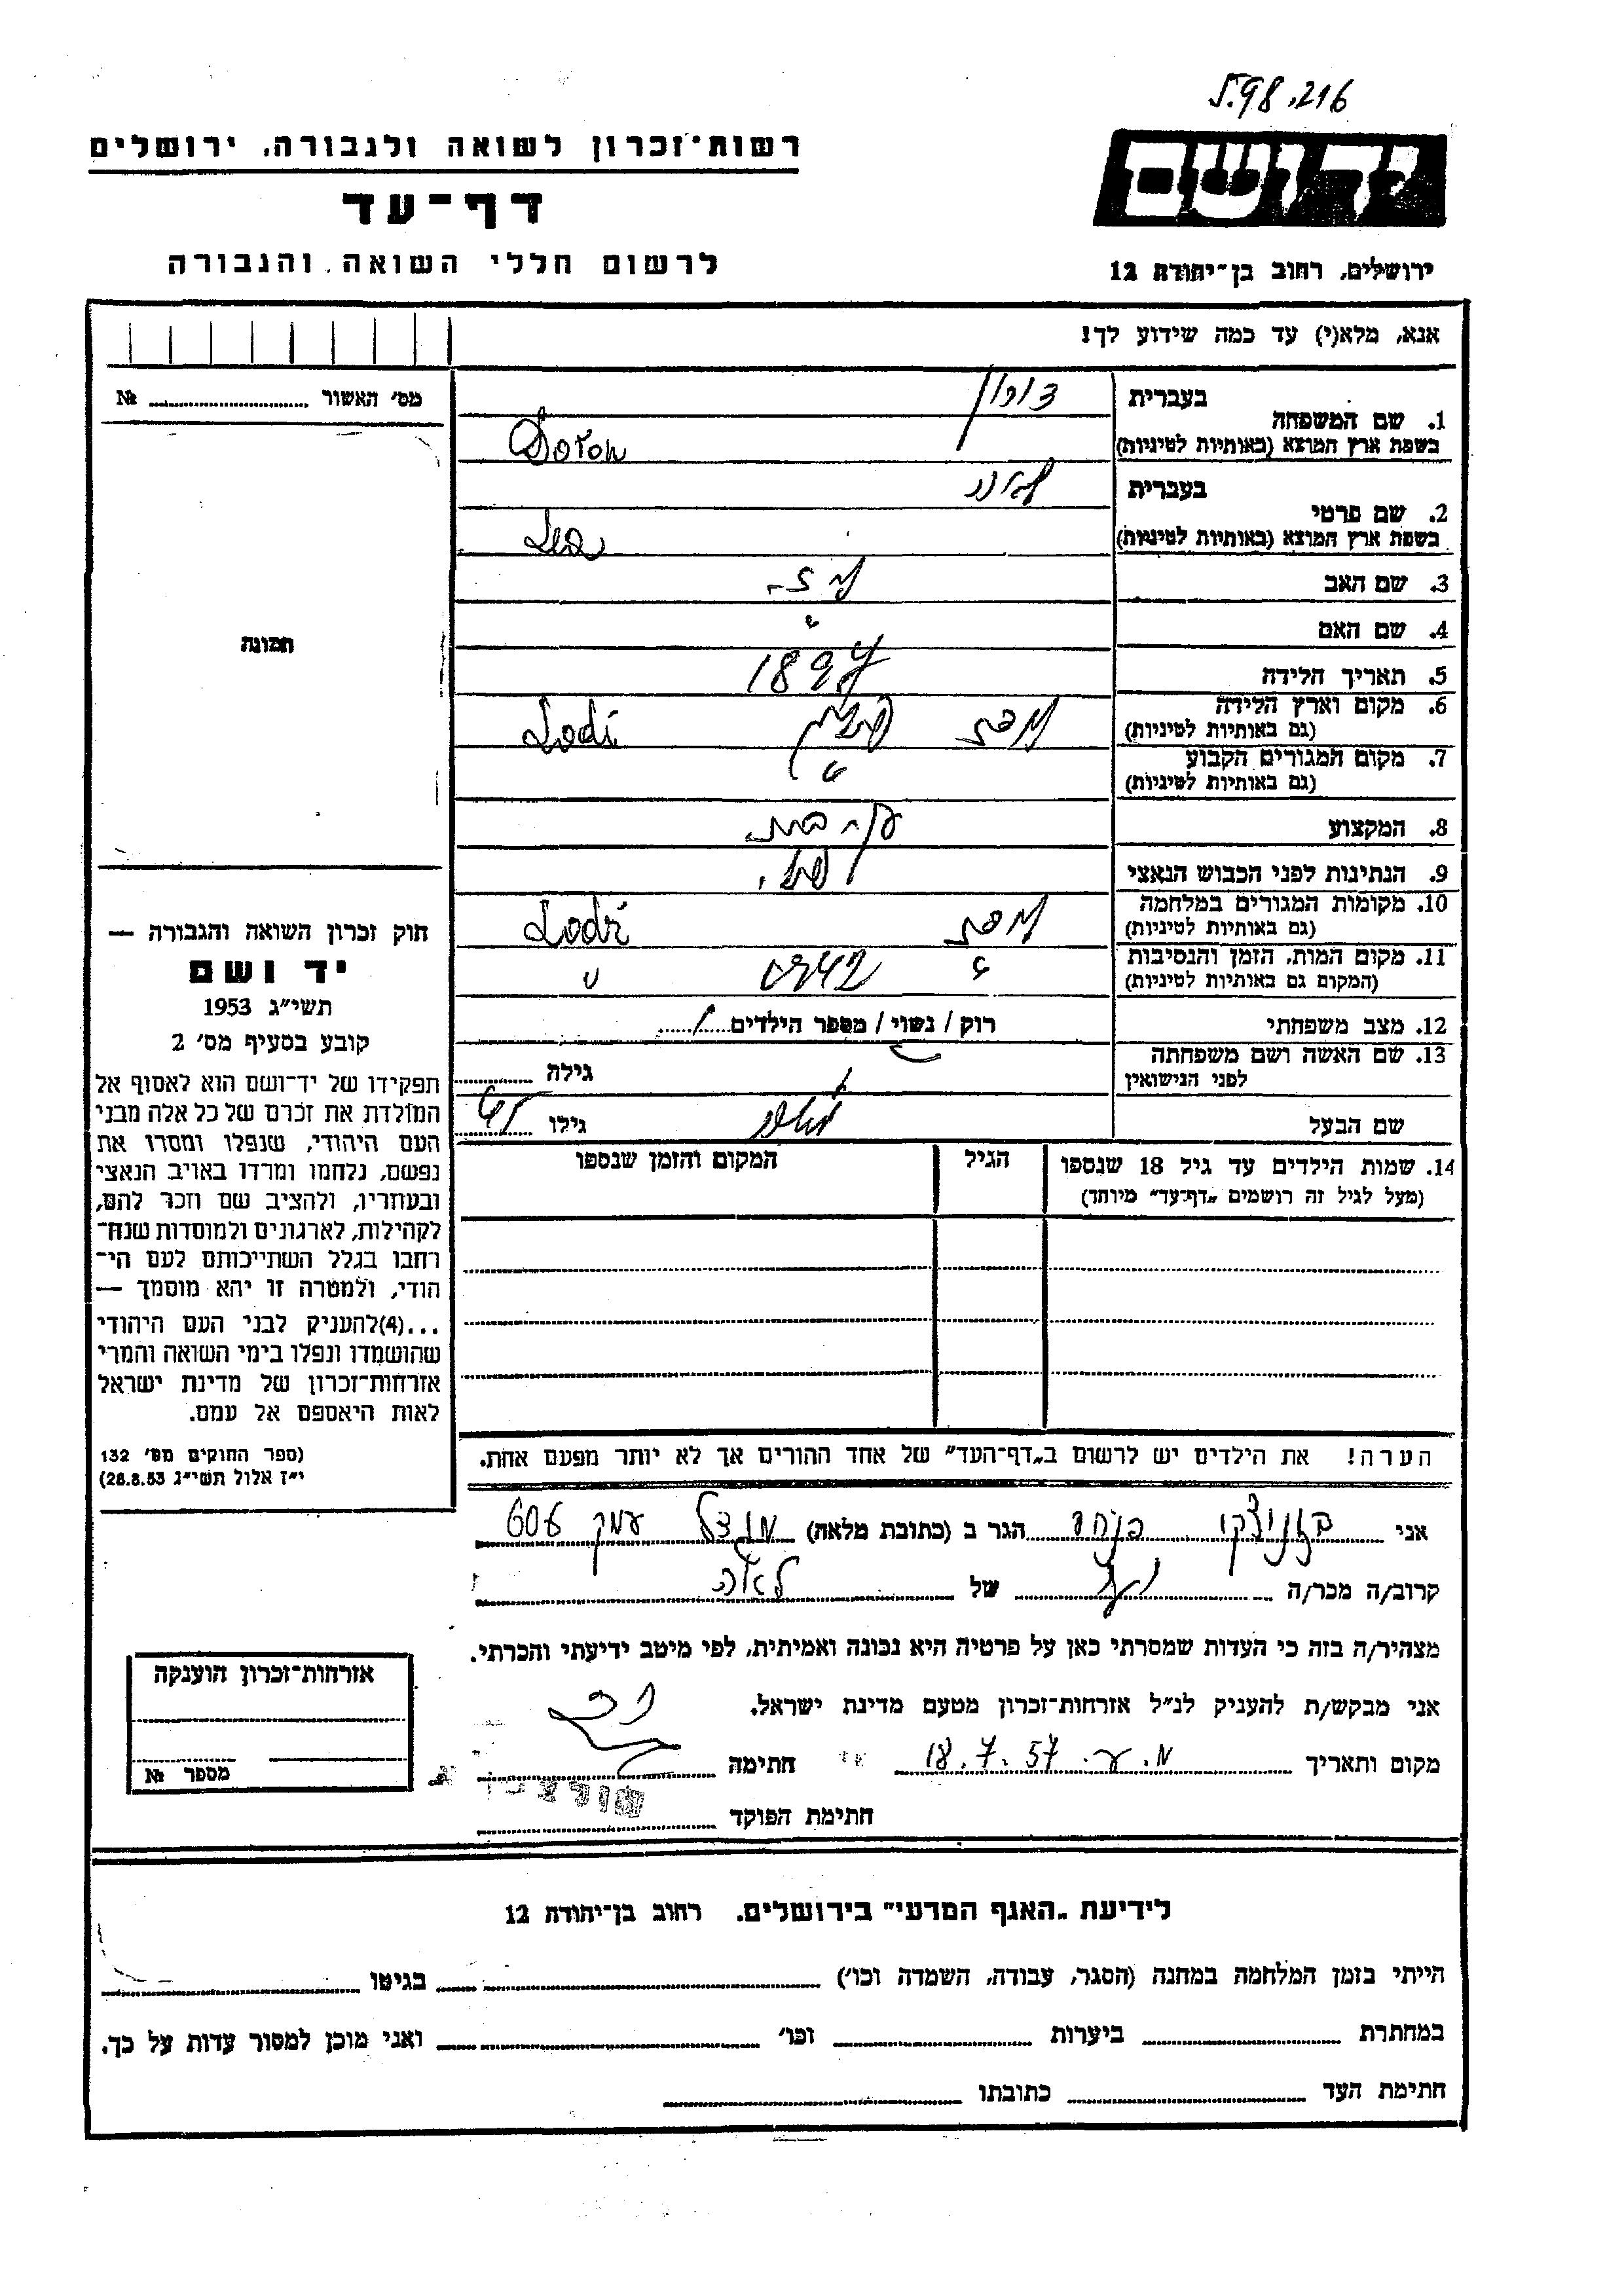 5.98.216
רשות־זכרון לשואה ולגבורה, ירושלים
יד ושם
דף־עד
לרשום חללי השואה והגבורה
ירושלים, רחוב בן־יהודה 12
אנא, מלא(י) עד כמה שידוע לך!
מס׳ האשור № 
1. שם המשפחה
בעברית
בשפת ארץ המוצא (באותיות לטיניות) Doron
2. שם פרטי
בעברית
בשפת ארץ המוצא (באותיות לטיניות) Lea
3. שם האב
4. שם האם
5. תאריך הלידה 1897
6. מקום וארץ הלידה
(גם באותיות לטיניות) Lodź
7. מקום המגורים הקבוע
(גם באותיות לטיניות) "
8. המקצוע
9. הנתינות לפני הכבוש הנאצי
10. מקומות המגורים במלחמה
(גם באותיות לטיניות) Lodź
11. מקום המות, הזמן והנסיבות
(המקום גם באותיות לטיניות) " 1942 "
12. מצב משפחתי רוק / נשוי / מספר הילדים
13. שם האשה ושם משפחתה
לפני הנישואין
גילה
שם הבעל
גילו
14. שמות הילדים עד גיל 18 שנספו
(מעל לגיל זה רושמים „דף־עד״ מיוחד)
הגיל
המקום והזמן שנספו
הערה! את הילדים יש לרשום ב„דף־העד״ של אחד ההורים אך לא יותר מפעם אחת.
תמונה
חוק זכרון השואה והגבורה —
יד ושם
תשי״ג 1953
קובע בסעיף מס׳ 2
תפקידו של יד־ושם הוא לאסוף אל
המולדת את זכרם של כל אלה מבני
העם היהודי, שנפלו ומסרו את
נפשם, נלחמו ומרדו באויב הנאצי
ובעוזריו, ולהציב שם וזכר להם,
לקהילות, לארגונים ולמוסדות שנח־
רבו בגלל השתייכותם לעם הי־
הודי, ולמטרה זו יהא מוסמך —
...(4)להעניק לבני העם היהודי
שהושמדו ונפלו בימי השואה והמרי
אזרחות־זכרון של מדינת ישראל
לאות היאספם אל עמם.
(ספר החוקים מס׳ 132
י״ז אלול תשי״ג 28.8.53)
אני הגר ב (כתובת מלאה) מגדל עמק 606
קרוב/ה מכר/ה של לאה
מצהיר/ה בזה כי העדות שמסרתי כאן על פרטיה היא נכונה ואמיתית, לפי מיטב ידיעתי והכרתי.
אני מבקש/ת להעניק לנ״ל אזרחות־זכרון מטעם מדינת ישראל.
מקום ותאריך מ. ע. 18.7.57 חתימה
חתימת הפוקד
אזרחות־זכרון הוענקה
מספר №
לידיעת „האגף המדעי״ בירושלים. רחוב בן־יהודה 12
הייתי בזמן המלחמה במחנה (הסגר, עבודה, השמדה וכו׳) בגיטו
במחתרת ביערות וכו׳ ואני מוכן למסור עדות על כך.
חתימת העד כתובתו